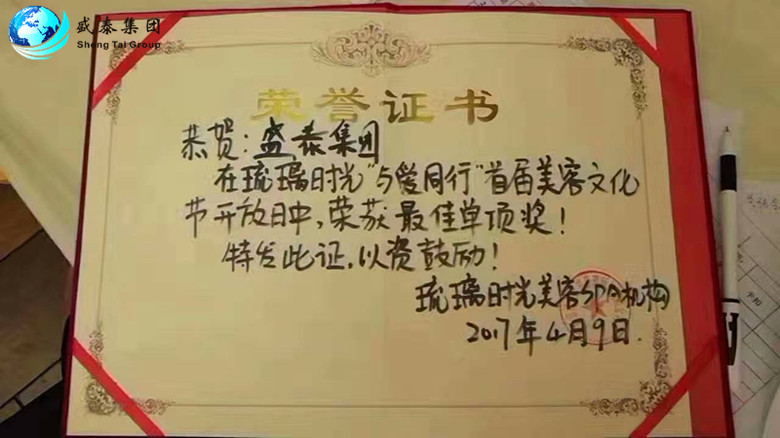 盛泰集团
Sheng Tai Group
荣誉证书
恭贺:盛泰集团
在琉璃时光"与爱同行"首届美容文化
节开放日中,荣获最佳单项奖!
特发此证,以资鼓励!
琉璃时光美容SPA机构
2017年4月9日.